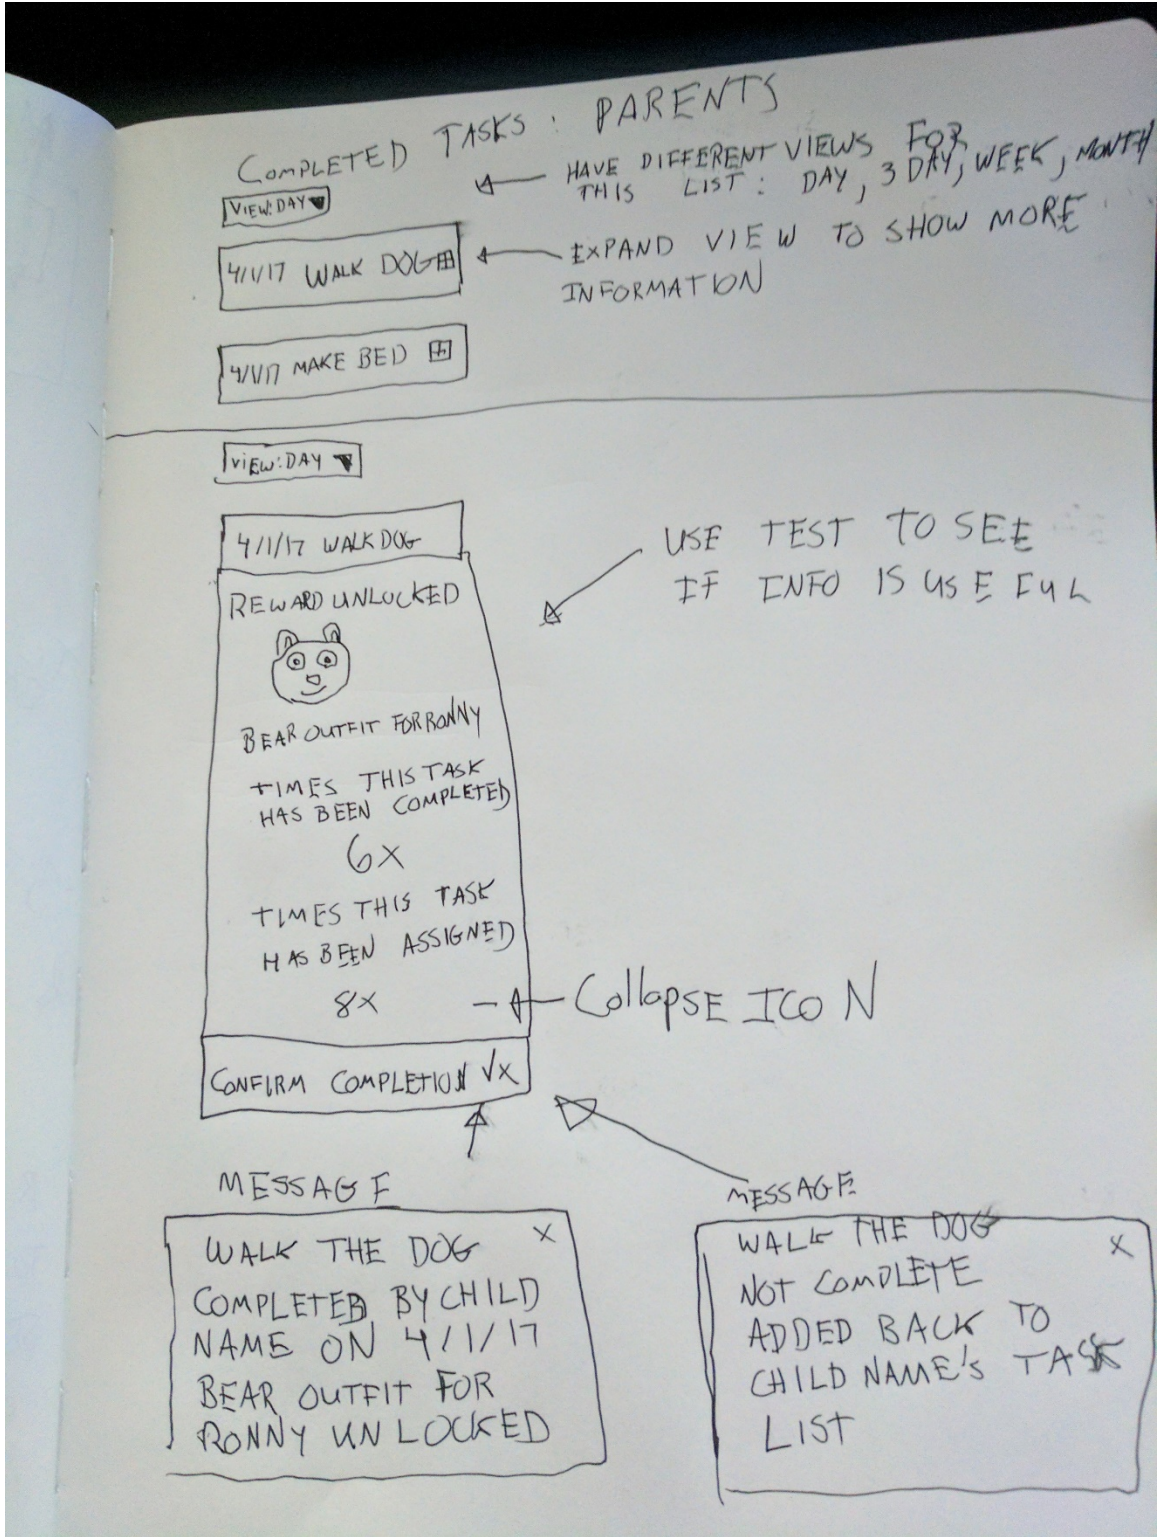 COMPLETED TASKS: PARENTS
VIEW: DAY
HAVE DIFFERENT VIEWS FOR
THIS LIST: DAY, 3 DAY, WEEK, MONTH
4/1/17 WALK DOG
EXPAND VIEW TO SHOW MORE
INFORMATION
4/1/17 MAKE BED
VIEW: DAY
4/1/17 WALK DOG
USE TEST TO SEE
IF INFO IS USEFUL
REWARD UNLOCKED
BEAR OUTFIT FOR RONNY
TIMES THIS TASK
HAS BEEN COMPLETED
6X
TIMES THIS TASK
HAS BEEN ASSIGNED
8X
COllAPSE ICON
CONFIRM COMPLETION √X
MESSAGE
WALK THE DOG X
COMPLETED BY CHILD
NAME ON 4/1/17
BEAR OUTFIT FOR
RONNY UNLOCKED
MESSAGE:
WALK THE DOG X
NOT COMPLETE
ADDED BACK TO
CHILD NAME'S TASK
LIST